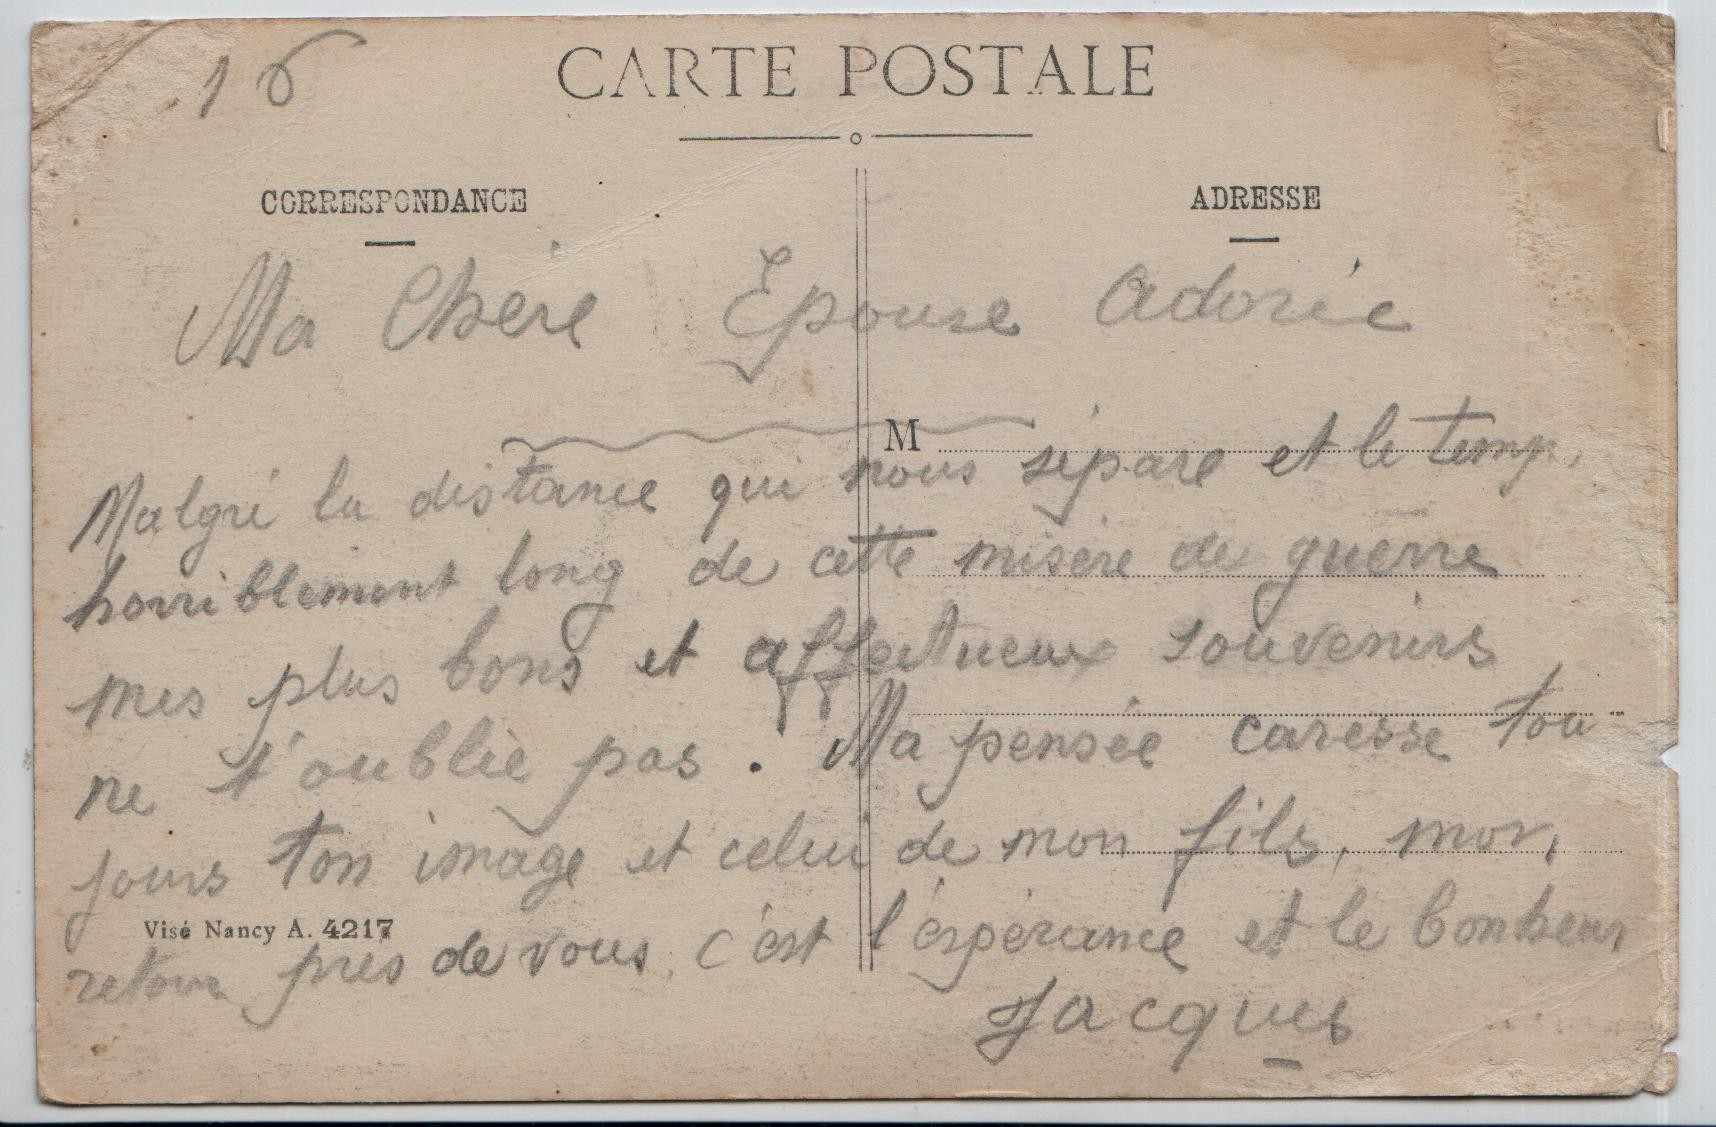 16
CARTE POSTALE
CORRESPONDANCE
ADRESSE
Ma Chère Epouse Adorée
M
Malgré la distance qui nous sépare et le temp.
horriblement long de cette misère de guerre
mes plus bons et affectueux souvenirs
ne t'oublie pas. Ma pensée caresse tou
jours ton image et celui de mon fils, mon,
Visé Nancy A. 4217
retour près de vous, c'est l'espérance et le bonheur
Jacques